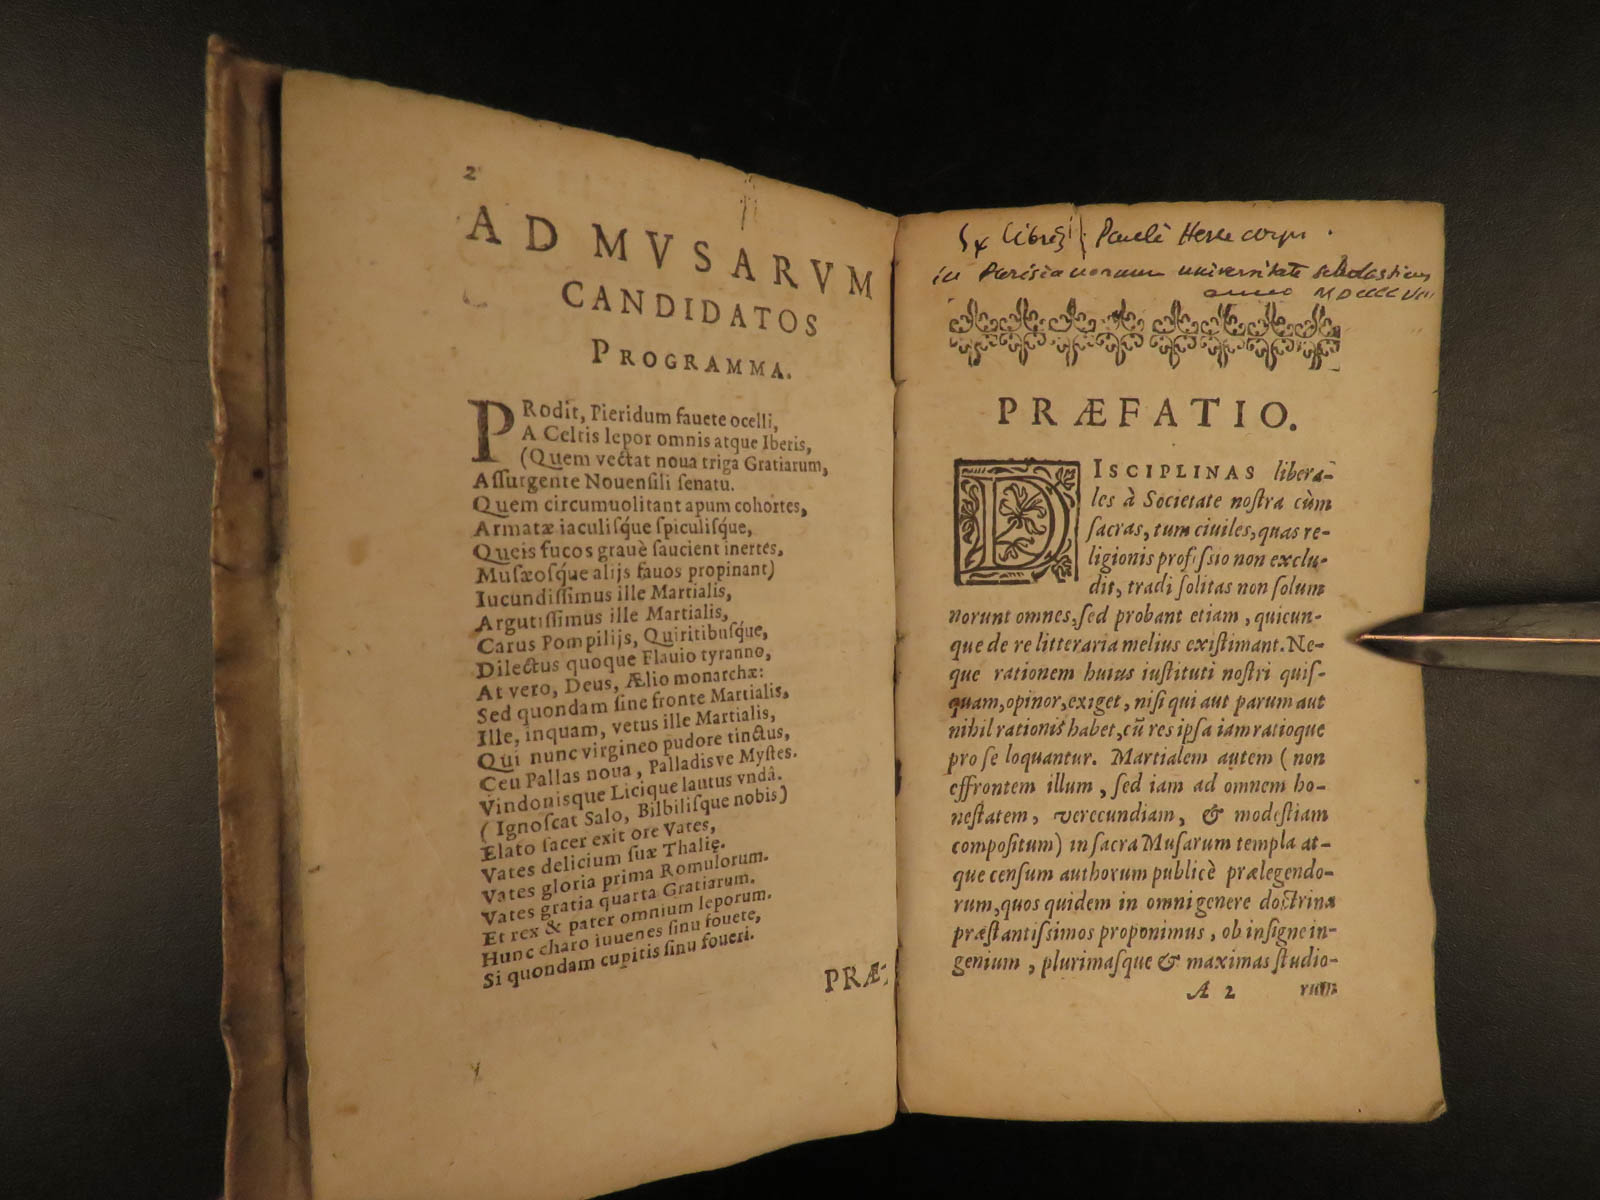 2
AD MVSARVM
CANDIDATOS
PROGRAMMA.
PRodit, Pieridum fauete ocelli,
A Celtis lepor omnis atque Iberis,
(Quem vectat noua triga Gratiarum,
Assurgente Nouensili senatu.
Quem circumuolitant apum cohortes,
Armatæ iaculisq́ue spiculisq́ue,
Queis fucos grauè saucient inertes,
Musæosq́ue alijs fauos propinant)
Iucundissimus ille Martialis,
Argutissimus ille Martialis,
Carus Pompilijs, Quiritibusq́ue,
Dilectus quoque Flauio tyranno,
At vero, Deus, Ælio monarchæ:
Sed quondam sine fronte Martialis,
Ille, inquam, vetus ille Martialis,
Qui nunc virgineo pudore tinctus,
Ceu Pallas noua, Palladisve Mystes.
Vindonisque Licique lautus vndâ.
(Ignoscat Salo, Bilbilisque nobis)
Elato sacer exit ore Vates,
Vates delicium suæ Thalię.
Vates gloria prima Romulorum.
Vates gratia quarta Gratiarum.
Et rex & pater omnium leporum.
Hunc charo iuuenes sinu fouete,
Si quondam cupitis sinu foueri.
PRÆ-
Ex Libris Pauli
in Parisianorum universitate scholasticus
anno
PRÆFATIO.
DISCIPLINAS libera-
les à Societate nostra cùm
sacras, tum ciuiles, quas re-
ligionis professio non exclu-
dit, tradi solitas non solum
norunt omnes, sed probant etiam, quicun-
que de re litteraria melius existimant. Ne-
que rationem huius instituti nostri quis-
quam, opinor, exiget, nisi qui aut parum aut
nihil rationis habet, cũ res ipsa iam ratioque
pro se loquantur. Martialem autem (non
effrontem illum, sed iam ad omnem ho-
nestatem, verecundiam, & modestiam
compositum) in sacra Musarum templa at-
que censum authorum publicè prælegendo-
rum, quos quidem in omni genere doctrina
præstantissimos proponimus, ob insigne in-
genium, plurimasque & maximas studio-
A 2 rum